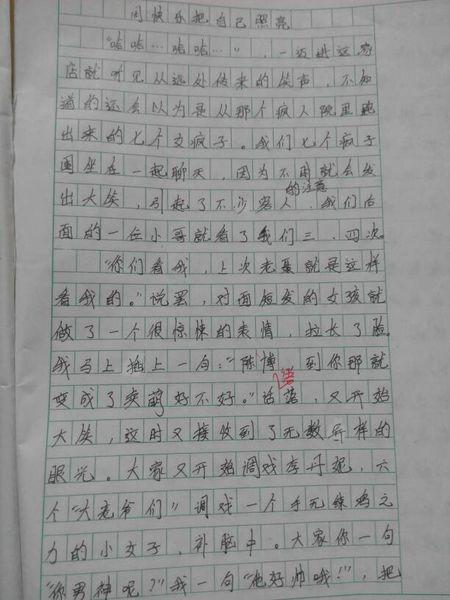 用快乐把自己照亮
“哈哈…哈哈…”，一迈进这家
店就听见从远处传来的笑声，不知
道的还会以为是从那个疯人院里跑
出来的七个女疯子。我们七个疯子
围坐在一起聊天，因为不时就会发
出大笑，引起了不少客人的注意，我们后
面的一位小哥就看了我们三、四次。
“你们看我，上次老聂就是这样
看我的。”说罢，对面短发的女孩就
做了一个很惊悚的表情，拉长了脸。
我马上独上一句：“陈博，到你那就
变成了卖萌好不好。”话语落，又开始
大笑，这时又接收到了无数异样的
眼光。大家又开始调戏李丹妮，六
个“大老爷们”调戏一个手无缚鸡之
力的小女子，补脑中。大家你一句
“你男神呢？”我一句“他好帅哦！”，把